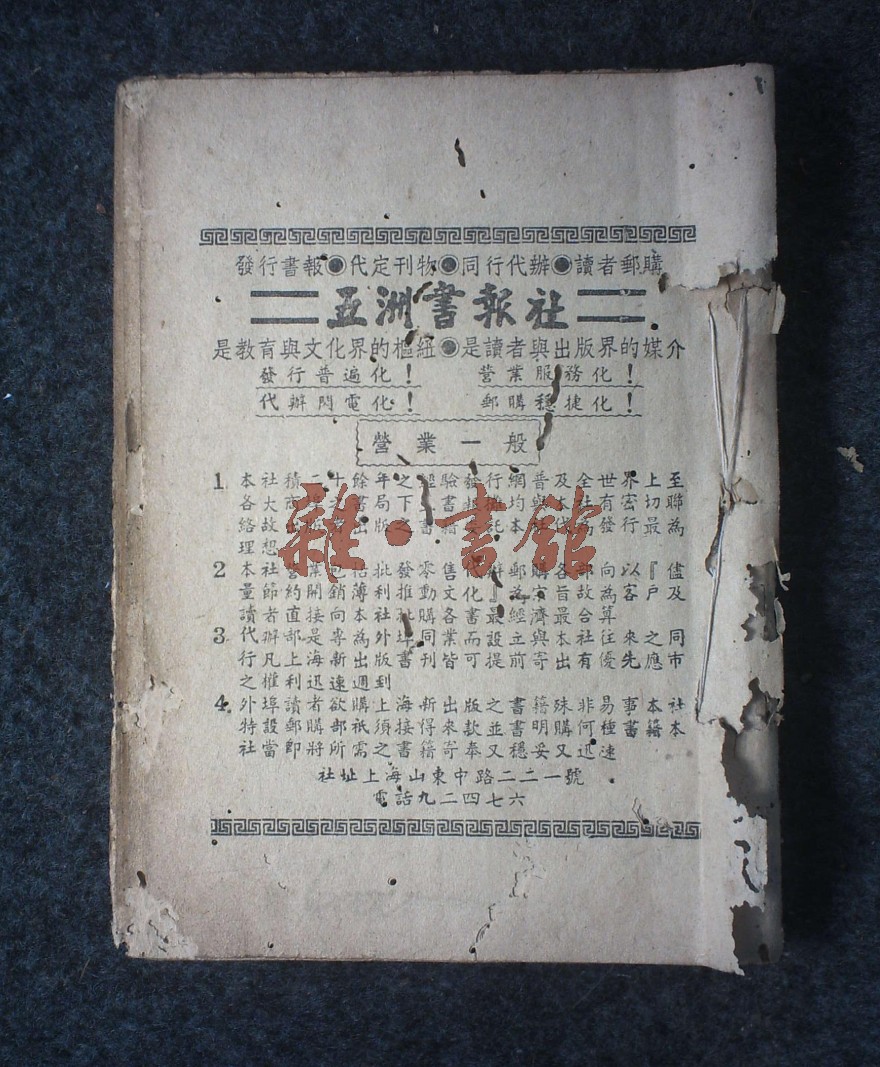 發行書報●代定刊物●同行代辦●讀者郵購
亞洲書報社
是教育與文化界的樞紐●是讀者與出版界的媒介
發行普遍化！ 營業服務化！
代辦閃電化！ 郵購穩捷化！
營業一般
1 本社積二十餘年之經驗發行網普及全世界上至
各大商 書局下 書報 均與本社有密切聯
絡故 出版 書籍 託本社代為發行最為
理想
2 本社營業包括批發零售代辦郵購各部向以『儘
量節約開銷薄利推動文化』為 旨故為客戶及
讀者直接向本社 購各書最經濟最合算
3 代辦部是專為外埠同業而設立與本社往來之同
行凡上海新出版書刊皆可提前寄出有優先應市
之權利迅速週到
4 外埠讀者欲購上海新出版之書籍殊非易事本社
特設郵購部祇須接得來款並書明購何種書籍本
社當即將所需之書籍寄奉又穩妥又迅速
社址上海山東中路二二一號
電話九二四七六
雜·書館